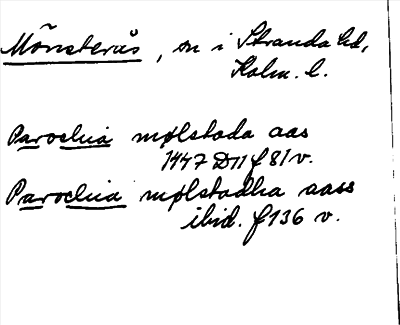 Mönsterås, sn i Stranda hd,
Kalm. l.
Parochia mølstada aas
1447 D11 f 81 v.
Parochia mølstadha aass
ibid. f 136 v.